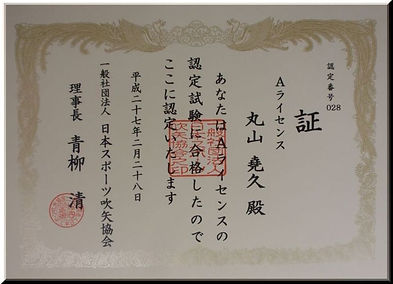 認定番号
028
証
Aライセンス
丸山 堯久 殿
あなたはAライセンスの
認定試験に合格したので
ここに認定いたします
平成二十七年二月二十八日
一般社団法人 日本スポーツ吹矢協会
理事長 青柳 清